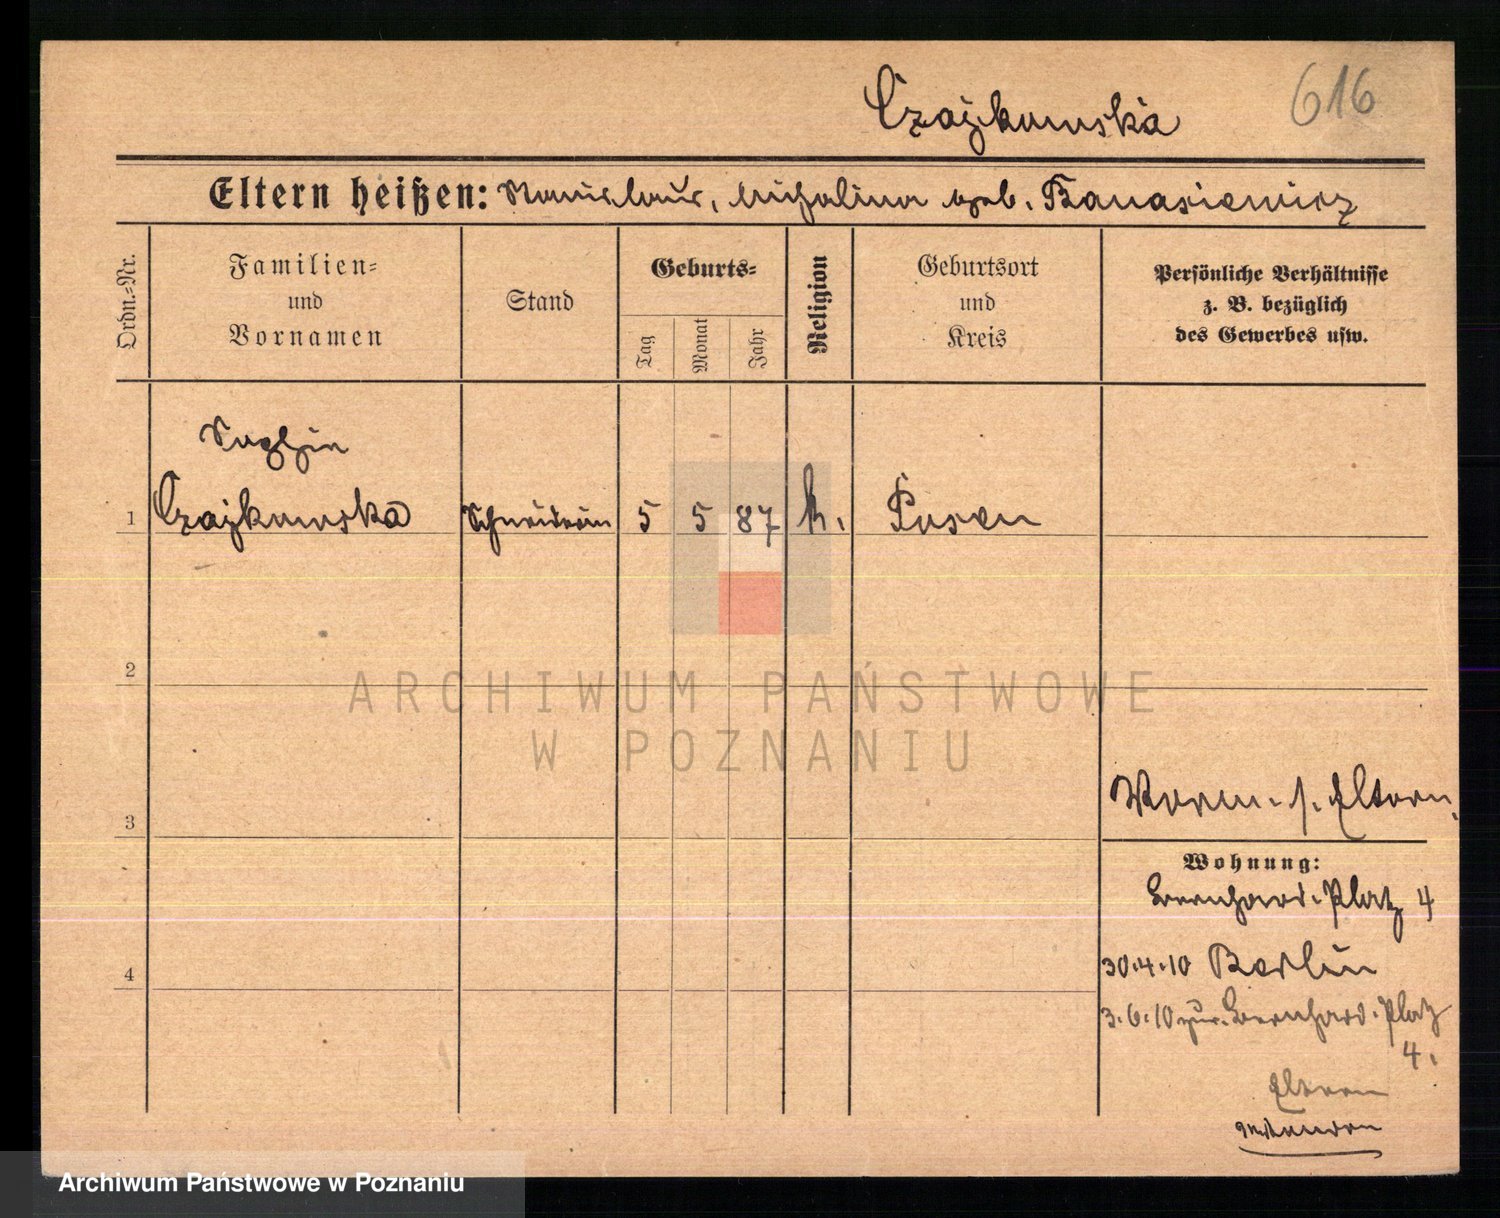 616
Czajkowska
Eltern heißen: Stanislaus, Michalina geb. Banasiewicz
Ordn.=Nr.
Familien=
und
Vornamen
Stand
Geburts=
Tag
Monat
Jahr
Religion
Geburtsort
und
Kreis
Persönliche Verhältnisse
z. B. bezüglich
des Gewerbes usw.
Sophie
1 Czajkowska Schneiderin 5 5 87 k. Posen
2
ARCHIWUM PAŃSTWOWE
W POZNANIU
3
Vorm. s. Eltern.
Wohnung:
Bernhard. Platz 4
4
30.4.10 Berlin
3.6.10 zur. Bernhard. Platz
4.
Eltern
Archiwum Państwowe w Poznaniu